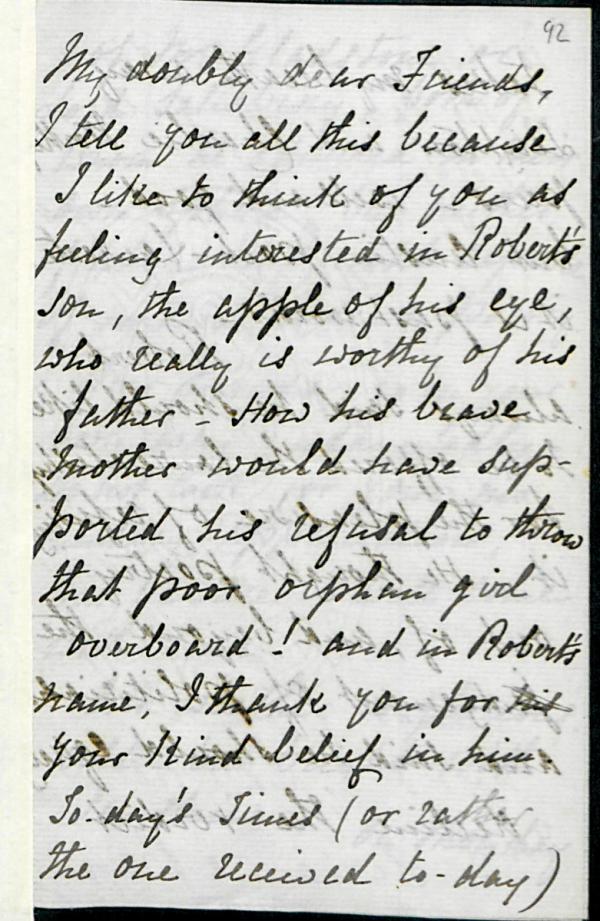 92
My doubly dear Friends,
I tell you all this because
I like to think of you as
feeling interested in Robert's
son, the apple of his eye,
who really is worthy of his
father - How his brave
mother would have sup-
ported his refusal to throw
that poor orphan girl
overboard ! and in Robert's
name, I thank you for his
your kind belief in him.
To-day's Times (or rather
the one received to-day)